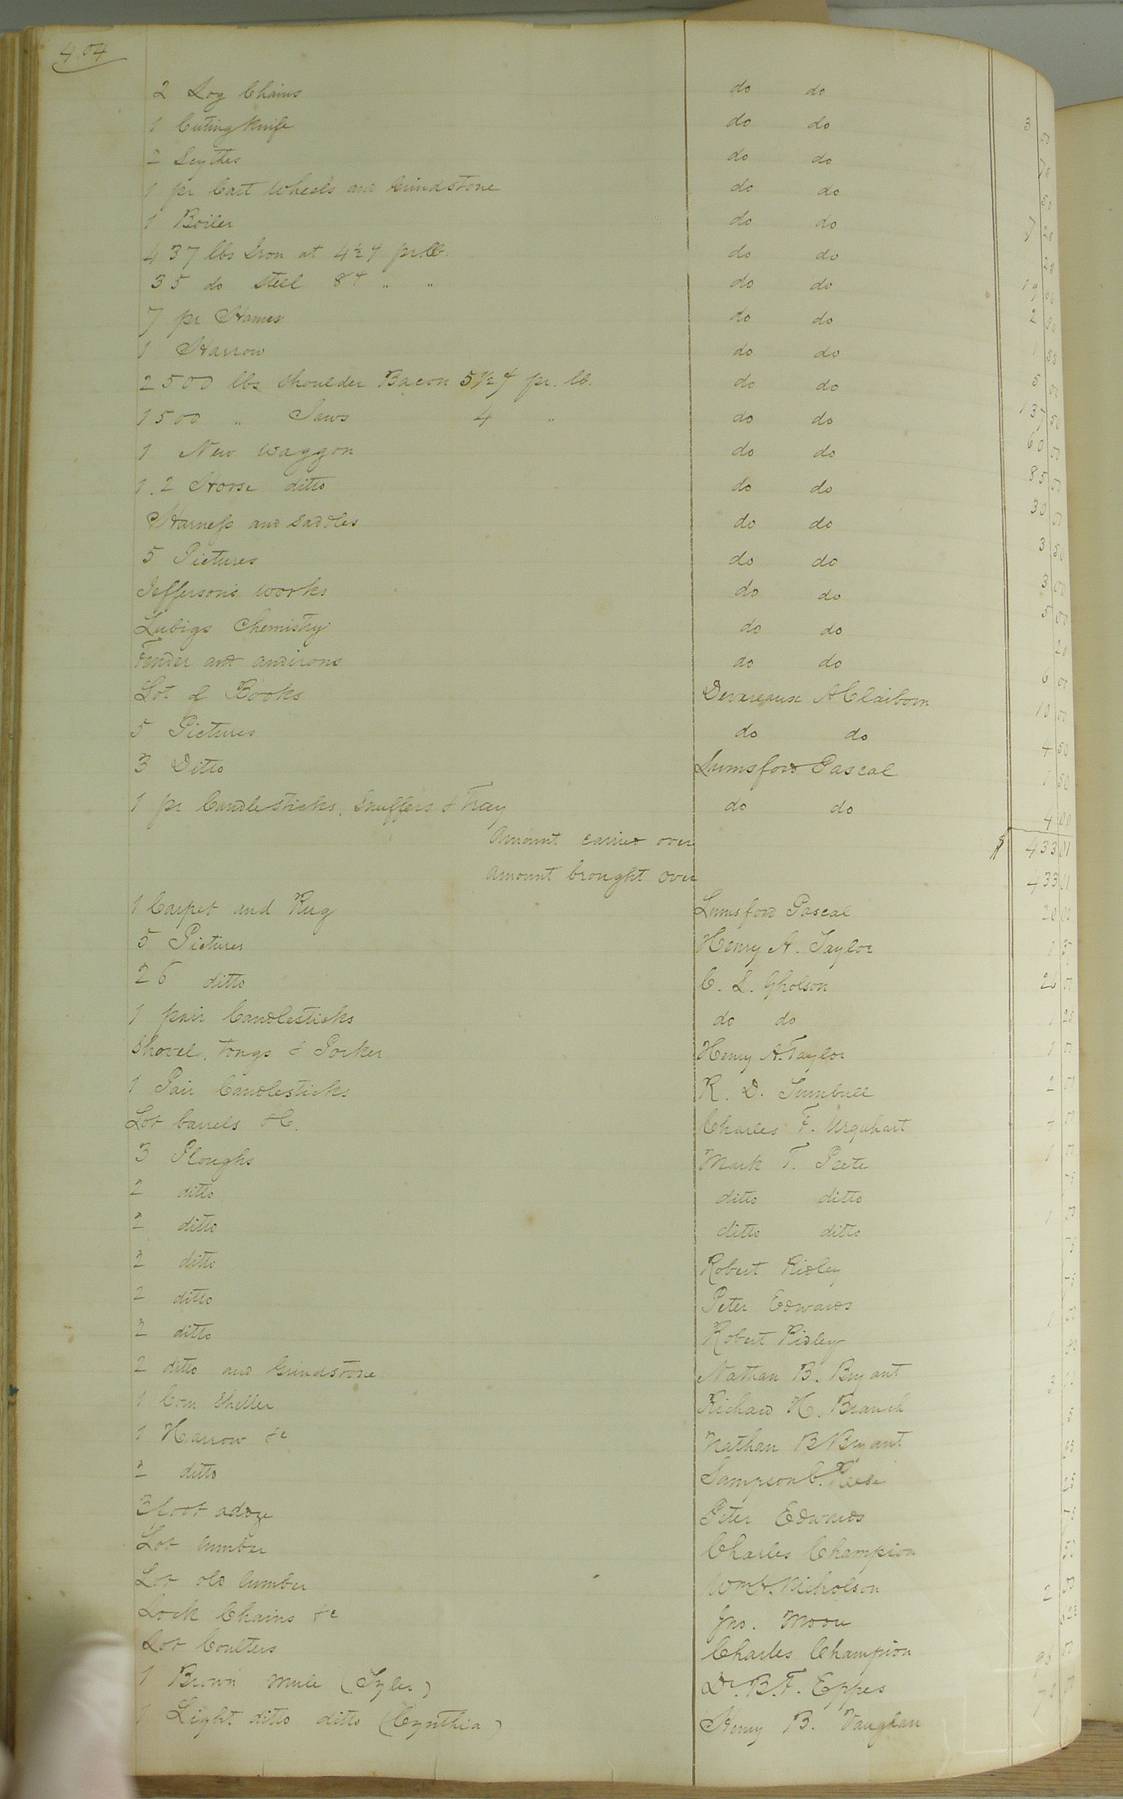 404
2 Log Chains do do
1 Cuting Knife do do 3
2 Scythes do do
1 pr Cart Wheels and Grindstone do do
1 Boiler do do
437 lbs Iron at 4½ ¢ pr lb. do do
35 do Steel 8¢ " " do do
7 pr Hames do do
1 Harrow do do
2500 lbs Shoulder Bacon 5½ ¢ pr. lb. do do
1500 " Jaws 4 " do do 137 50
1 New Waggon do do 60
1. 2 Horse ditto do do 85
Harness and Saddles do do 30
5 Pictures do do 3 50
Jeffersons works do do 3
Liebigs Chemistry do do 5
Fender and andirons do do
Lot of Books Devereaux A Claiborn 6
5 Pictures do do 10
3 Ditto Lumsford Pascal
1 pr Candlesticks, Snuffers & Tray do do
Amount carried over $ 433 01
Amount brought over 433 01
1 Carpet and Rug Lumsford Pascal 20 00
5 Pictures Henry A. Taylor
26 ditto C. L. Gholson 26
1 pair Candlesticks do do
Shovel, tongs & Porker Henry A. Taylor
1 Pair Candlesticks R. D. Turnbull
Lot barrels &C. Charles F. Urquhart
3 Ploughs Mark T. Peete
2 ditto ditto ditto
2 ditto ditto ditto
2 ditto Robert Ridley
2 ditto Peter Edwards
2 ditto Robert Ridley
2 ditto and Grindstone Nathan B. Bryant
1 Corn Sheller Richard H. Branch
1 Harrow &c Nathan B Bryant
2 ditto Sampson C. Reese
3 foot adze Peter Edwards
Lot lumber Charles Champion
Lot old lumber Wm A. Nicholson
Lock Chains &c Jno. Moore
Lot Coulters Charles Champion
1 Brown mule (Tyler) Dr. B. F. Eppes
1 Light ditto ditto (Cynthia) Henry B. Vaughan